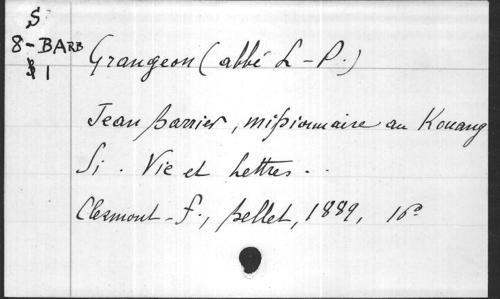 S
8 - BARB
1
Grangeon (abbé L - P.)
Jean Barrier, missionnaire au Kouang
Si. Vie et Lettres..
Clermont - F., Bellet, 1889, 16°